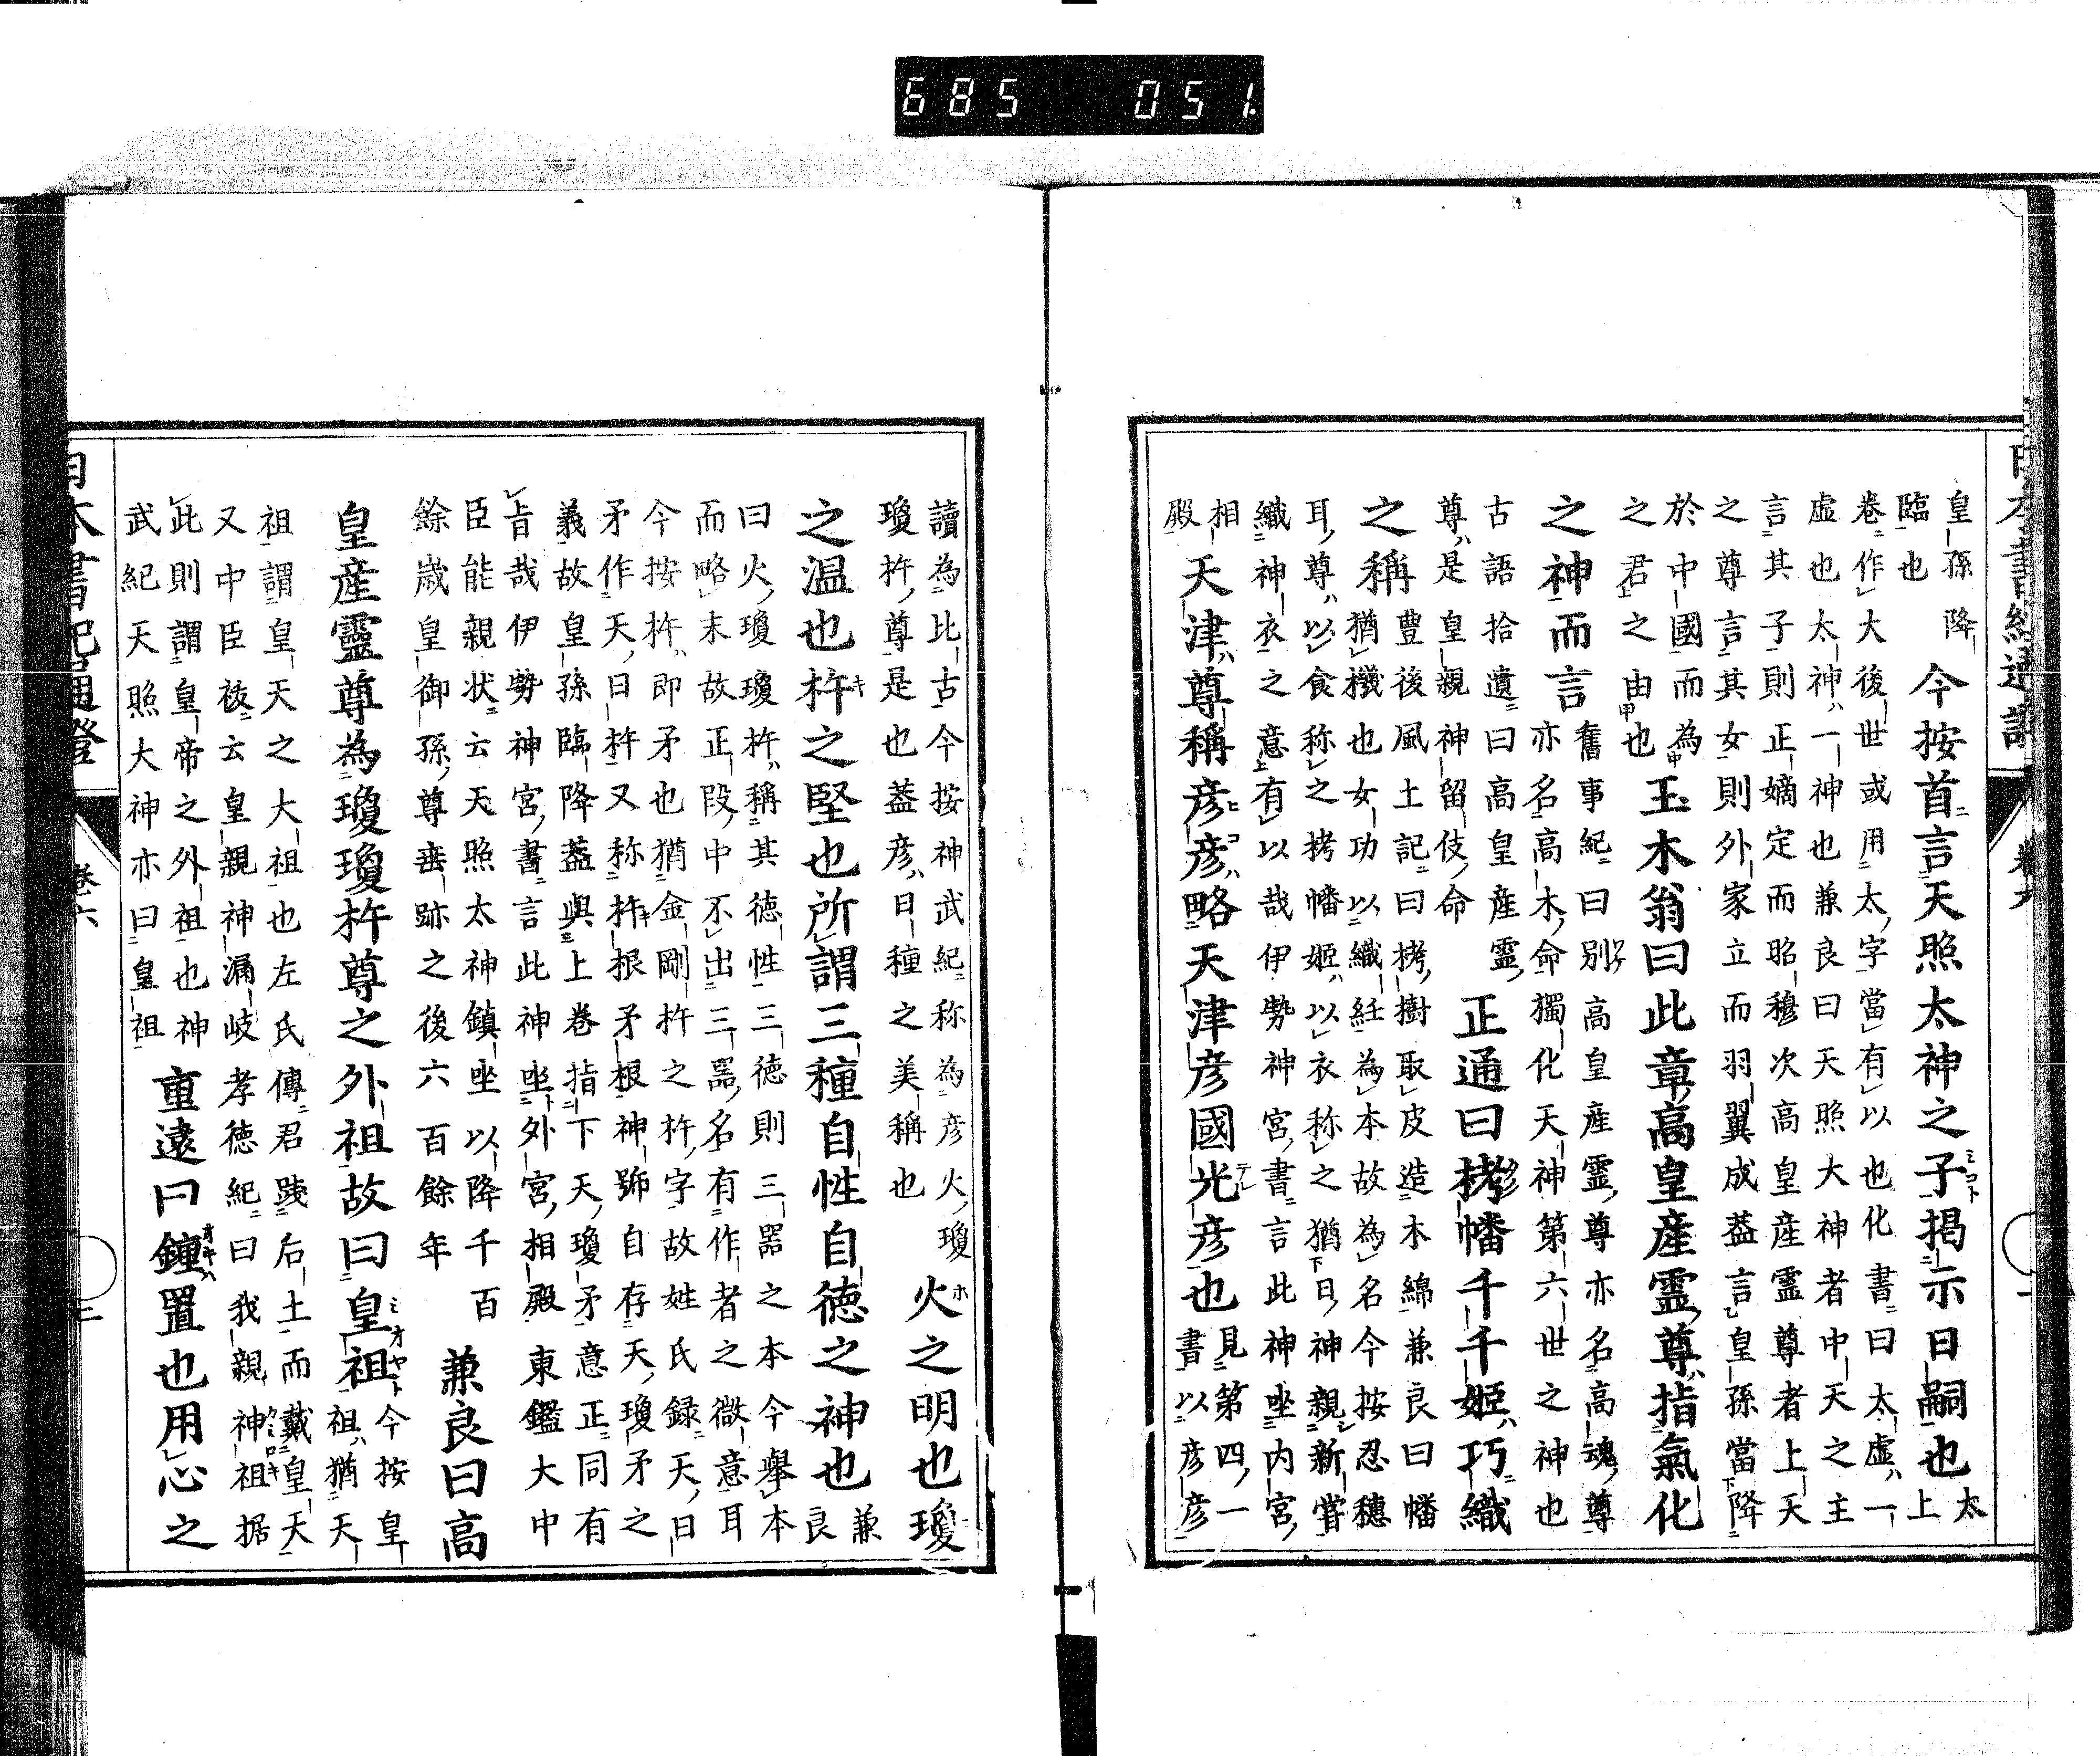 685 051
皇孫降
臨也
今按首言天照太神之子揭示日嗣也
太上
卷作大後世或用太字當有以也化書曰太虚一
虚也太神一神也兼良曰天照大神者中天之主
言其子則正嫡定而昭穆次高皇産靈尊者上天
之尊言其女則外家立而羽翼成葢言皇孫當降
於中國而為
之君之由也
玉木翁曰此章高皇産靈尊指氣化
之神而言
舊事紀曰別高皇産靈尊亦名高魂尊
亦名高木命獨化天神第六世之神也
古語拾遺曰高皇産靈
尊是皇親神留伎命
正通曰栲幡千千姬巧織
之稱
豊後風土記曰栲樹取皮造木綿兼良曰幡
猶機也女功以織紝為本故為名今按忍穗
耳尊以食称之栲幡姬以衣称之猶日神親新嘗
織神衣之意有以哉伊勢神宮書言此神坐内宮
相
殿
天津尊稱彦彦略天津彦國光彦也
見第四一
書以彦彦
讀為比古今按神武紀称為彦火瓊
瓊杵尊是也葢彦日種之美稱也
火之明也瓊
之温也杵之堅也所謂三種自性自徳之神也
兼良
曰火瓊瓊杵稱其徳性三徳則三器之本今舉本
而略末故正段中不出三器名有作者之微意耳
今按杵即矛也猶金剛杵之杵字故姓氏録天日
矛作天日杵又称杵根矛根神號自存天瓊矛之
義故皇孫臨降葢與上卷指下天瓊矛意正同有
旨哉伊勢神宮書言此神坐外宮相殿東鑑大中
臣能親状云天照太神鎮坐以降千百
餘歳皇御孫尊垂跡之後六百餘年
兼良曰高
皇産靈尊為瓊瓊杵尊之外祖故曰皇祖
今按皇
祖猶天
祖謂皇天之大祖也左氏傳君踐后土而戴皇天
又中臣祓云皇親神漏岐孝徳紀曰我親神祖据
此則謂皇帝之外祖也神
武紀天照大神亦曰皇祖
重遠曰鐘置也用心之
日本書紀通證
卷六